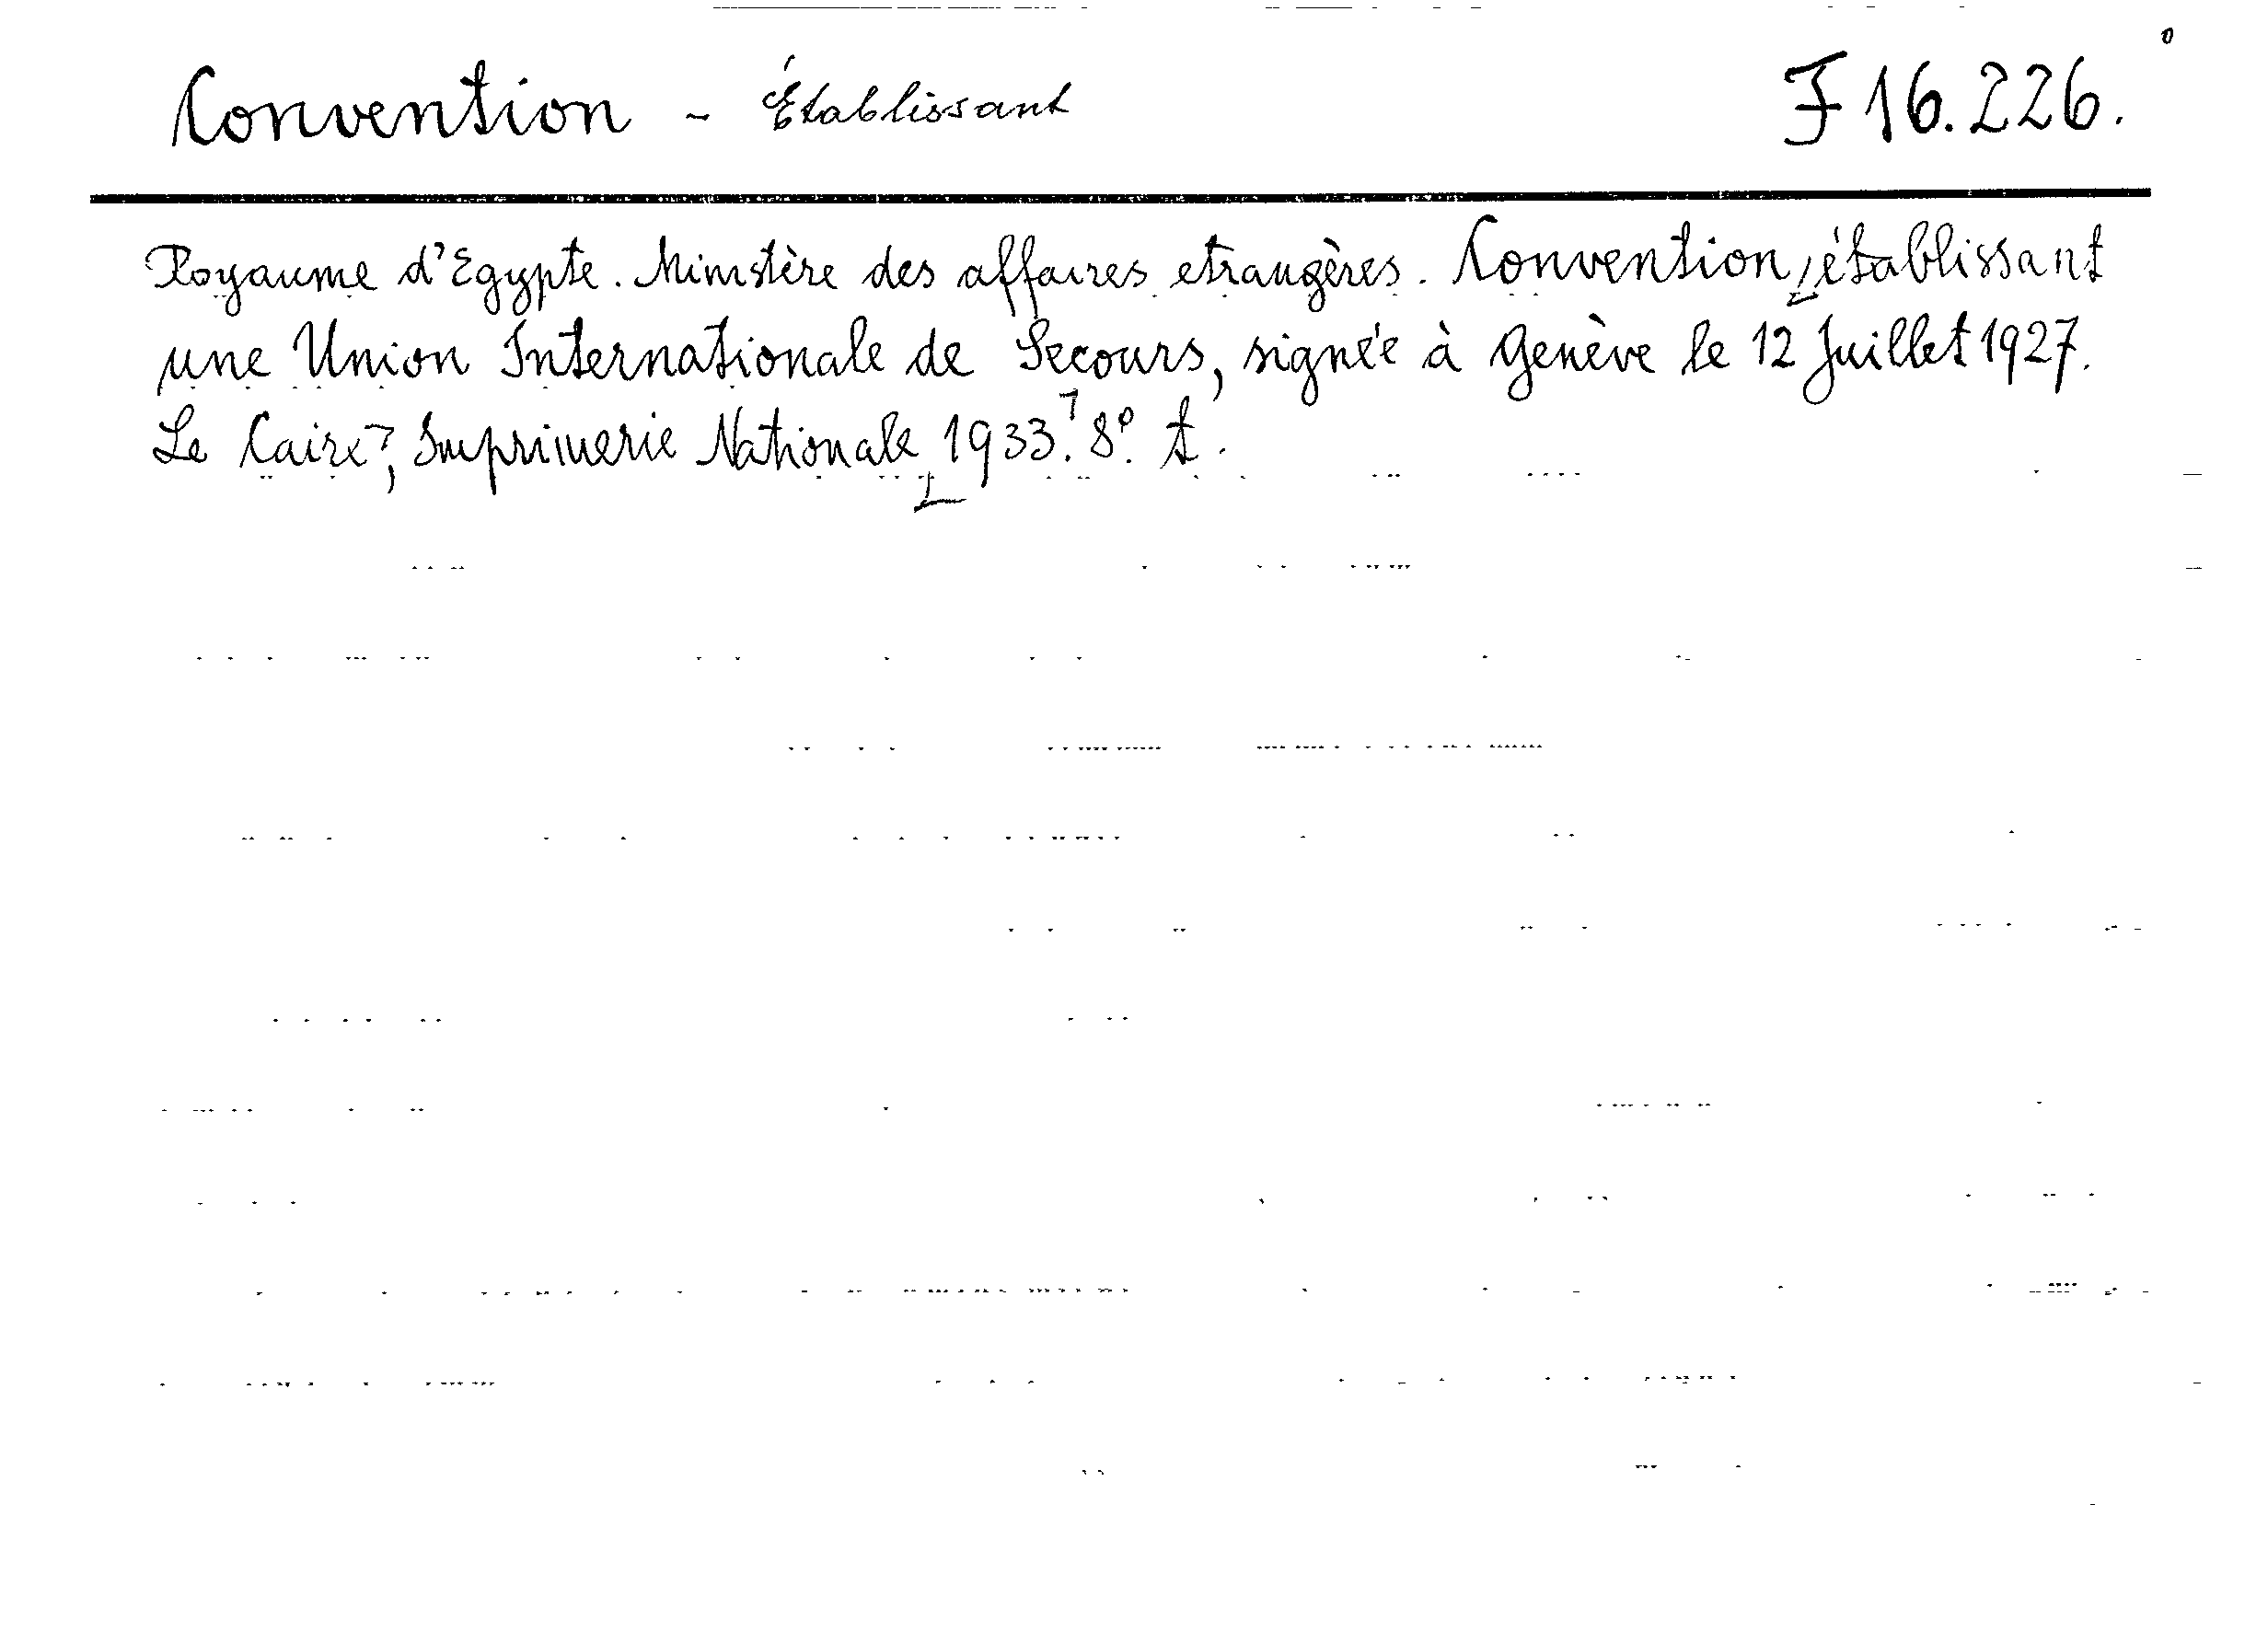 Convention - Établissant F 16.226.
Royaume d'Egypte. Ministère des affaires etrangères. Convention, établissant
une Union Internationale de Secours, signée à Genève le 12 Juillet 1927.
Le Caire, Imprimerie Nationale 1933. 8º.